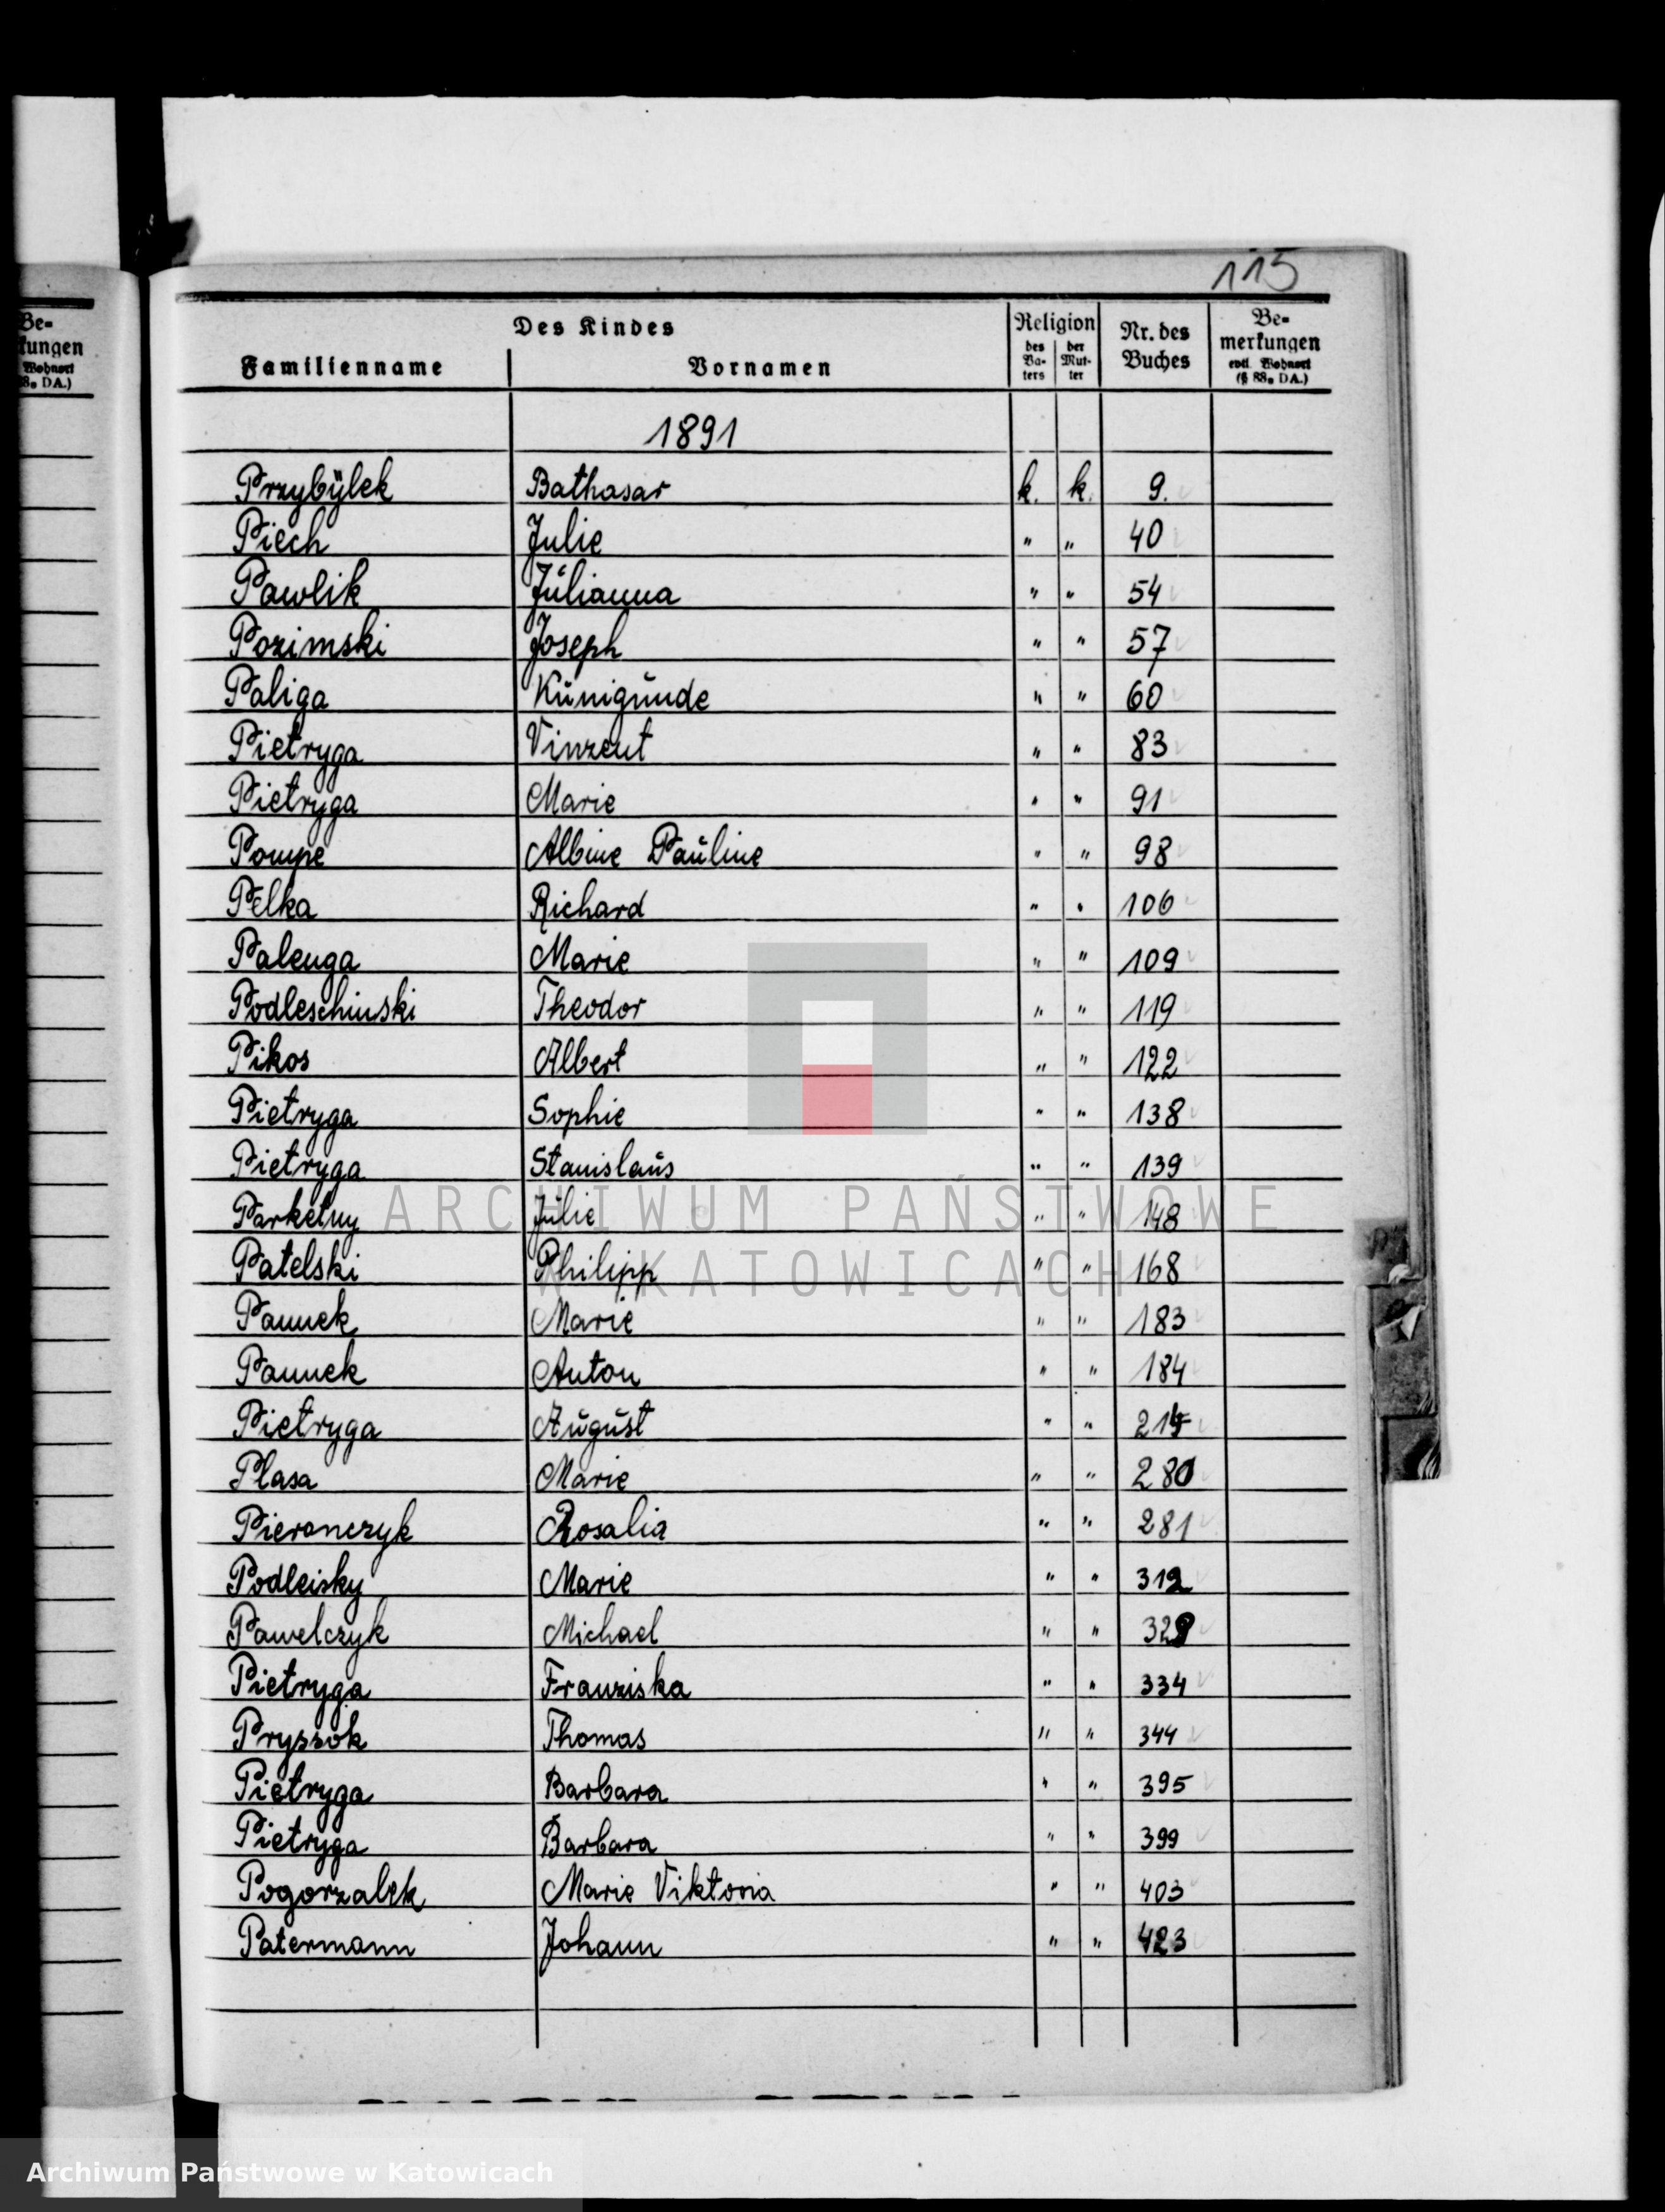 115
Be-
kungen
Wohnort
88a DA.)
Des Kindes
Familienname Vornamen
Religion
des Va-ters der Mut-ter
Nr. des Buches
Be-merkungen
evtl. Wohnort
(§ 88a DA.)
1891
Przybÿlek Bathasar k. k. 9.
Piech Julie " " 40
Pawlik Jŭlianna " " 54
Pozimski Joseph " " 57
Paliga Kŭnigŭnde " " 60
Pietryga Vinzent " " 83
Pietryga Marie " " 91
Pompe Albine Paŭline " " 98
Pelka Richard " " 106
Palenga Marie " " 109
Podleschinski Theodor " " 119
Pikos Albert " " 122
Pietryga Sophie " " 138
Pietryga Stanislaŭs " " 139
Parketny Jŭlie " " 148
Patelski Philipp " " 168
Pannek Marie " " 183
Pannek Anton " " 184
Pietryga Aŭgŭst " "
Plasa Marie " " 280
Pieronczyk Rosalia " " 281
Podleisky Marie " " 312
Pawelczyk Michael " " 329
Pietryga Franziska " " 334
Pryssok Thomas " " 344
Pietryga Barbara " " 395
Pietryga Barbara " " 399
Pogorzalek Marie Viktoria " " 403
Patermann Johann " " 423
ARCHIWUM PAŃSTWOWE
W KATOWICACH
Archiwum Państwowe w Katowicach